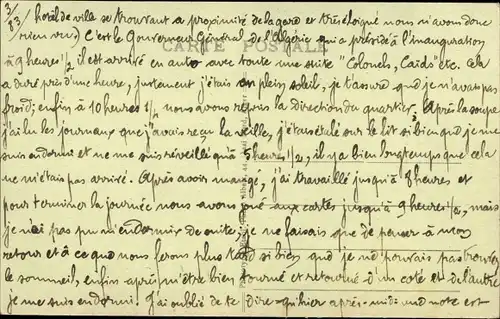 3/83/ hôtel de ville se trouvant a proximité de la gare et très éloigné nous n'avons donc
rien vu). C'est le Gouverneur Général de l'Algérie qui a présidé à l'inauguration
CARTE POSTALE
à 9 heures 1/2 il est arrivé en auto avec toute une suite "Colonels, Caïds" etc. Cela
a duré près d'une heure, justement j'étais en plein soleil, je t'assure que je n'avais pas
froid; enfin à 10 heures 1/2 nous avons repris la direction du quartier. Après la soupe
j'ai lu les journaux que j'avais reçu la veille, j'étais étalé sur le lit si bien que je me
suis endormi et ne me suis réveillé qu'à 5 heures 1/2, il y a bien longtemps que cela
ne m'étais pas arrivé. Après avoir mangé, j'ai travaillé jusqu'à 8 heures et
pour terminer la journée nous avons joué aux cartes jusqu'à 9 heures 1/2, mais
je n'ai pas pu m'endormir de suite; je ne faisais que de penser à mon
retour et à ce que nous ferons plus tard si bien que je ne pouvais pas trouver
le sommeil, enfin après m'être bien tourné et retourné d'un coté et de l'autre
je me suis endormi. J'ai oublié de te dire qu'hier après-midi une note est